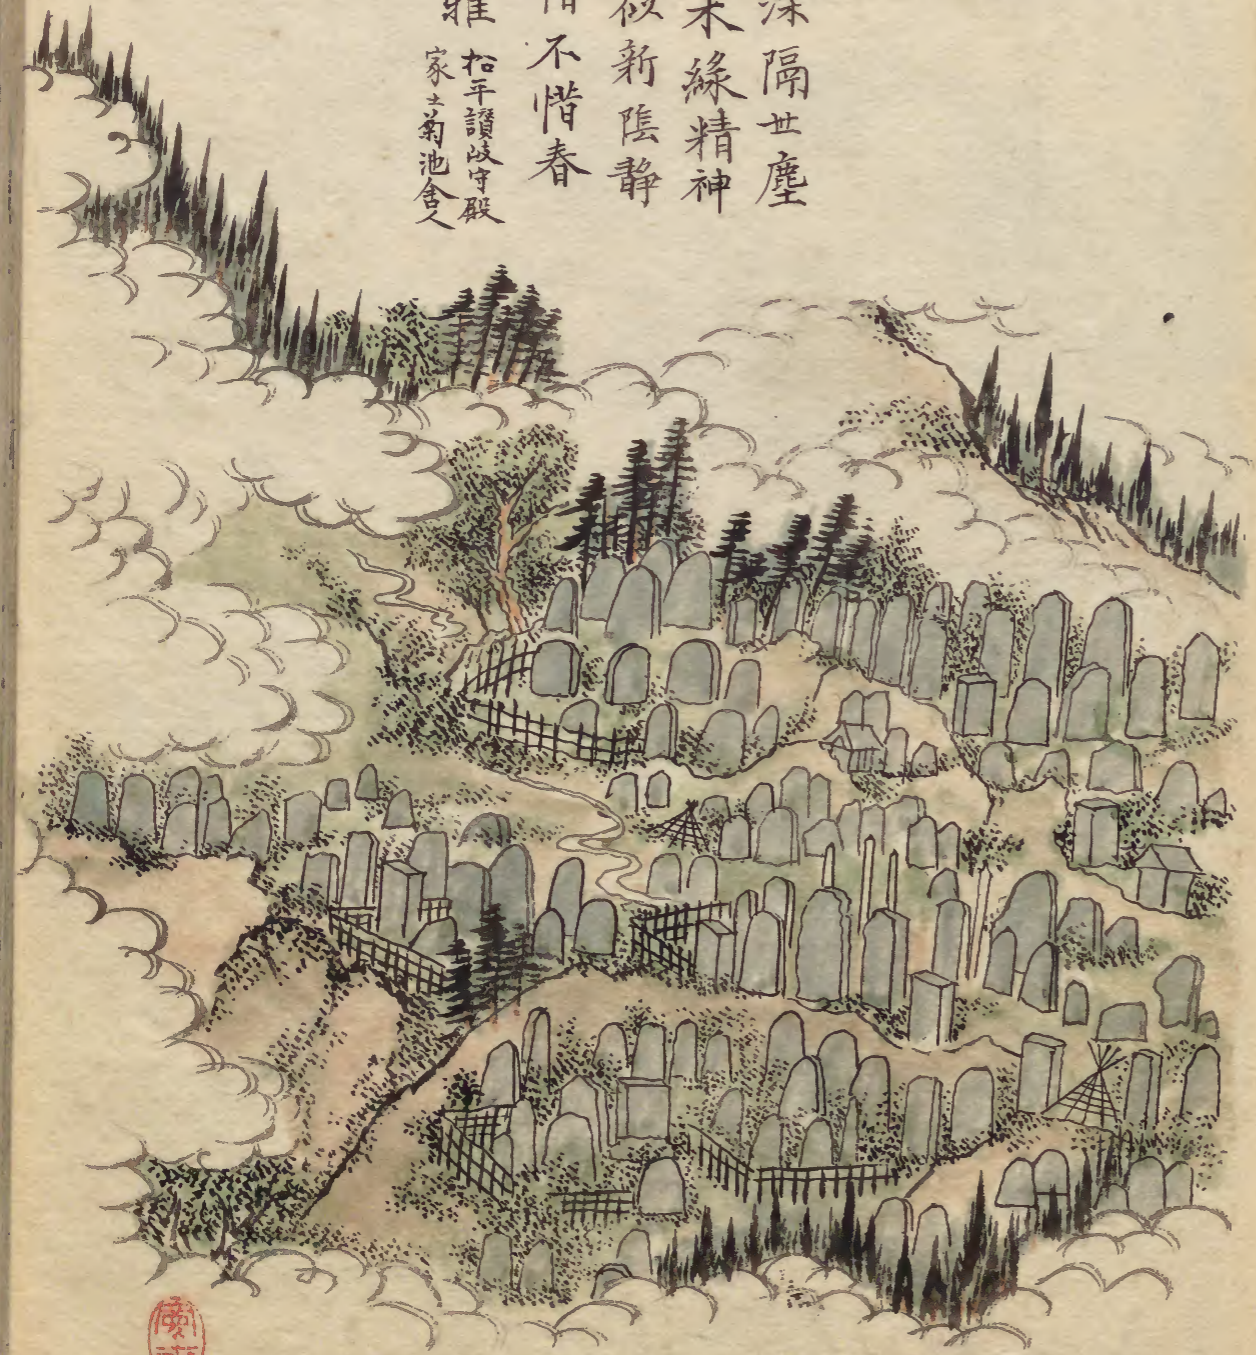 隔世塵
綠精神
新陰静
不惜春
松平讃岐守殿
家士菊池舎人